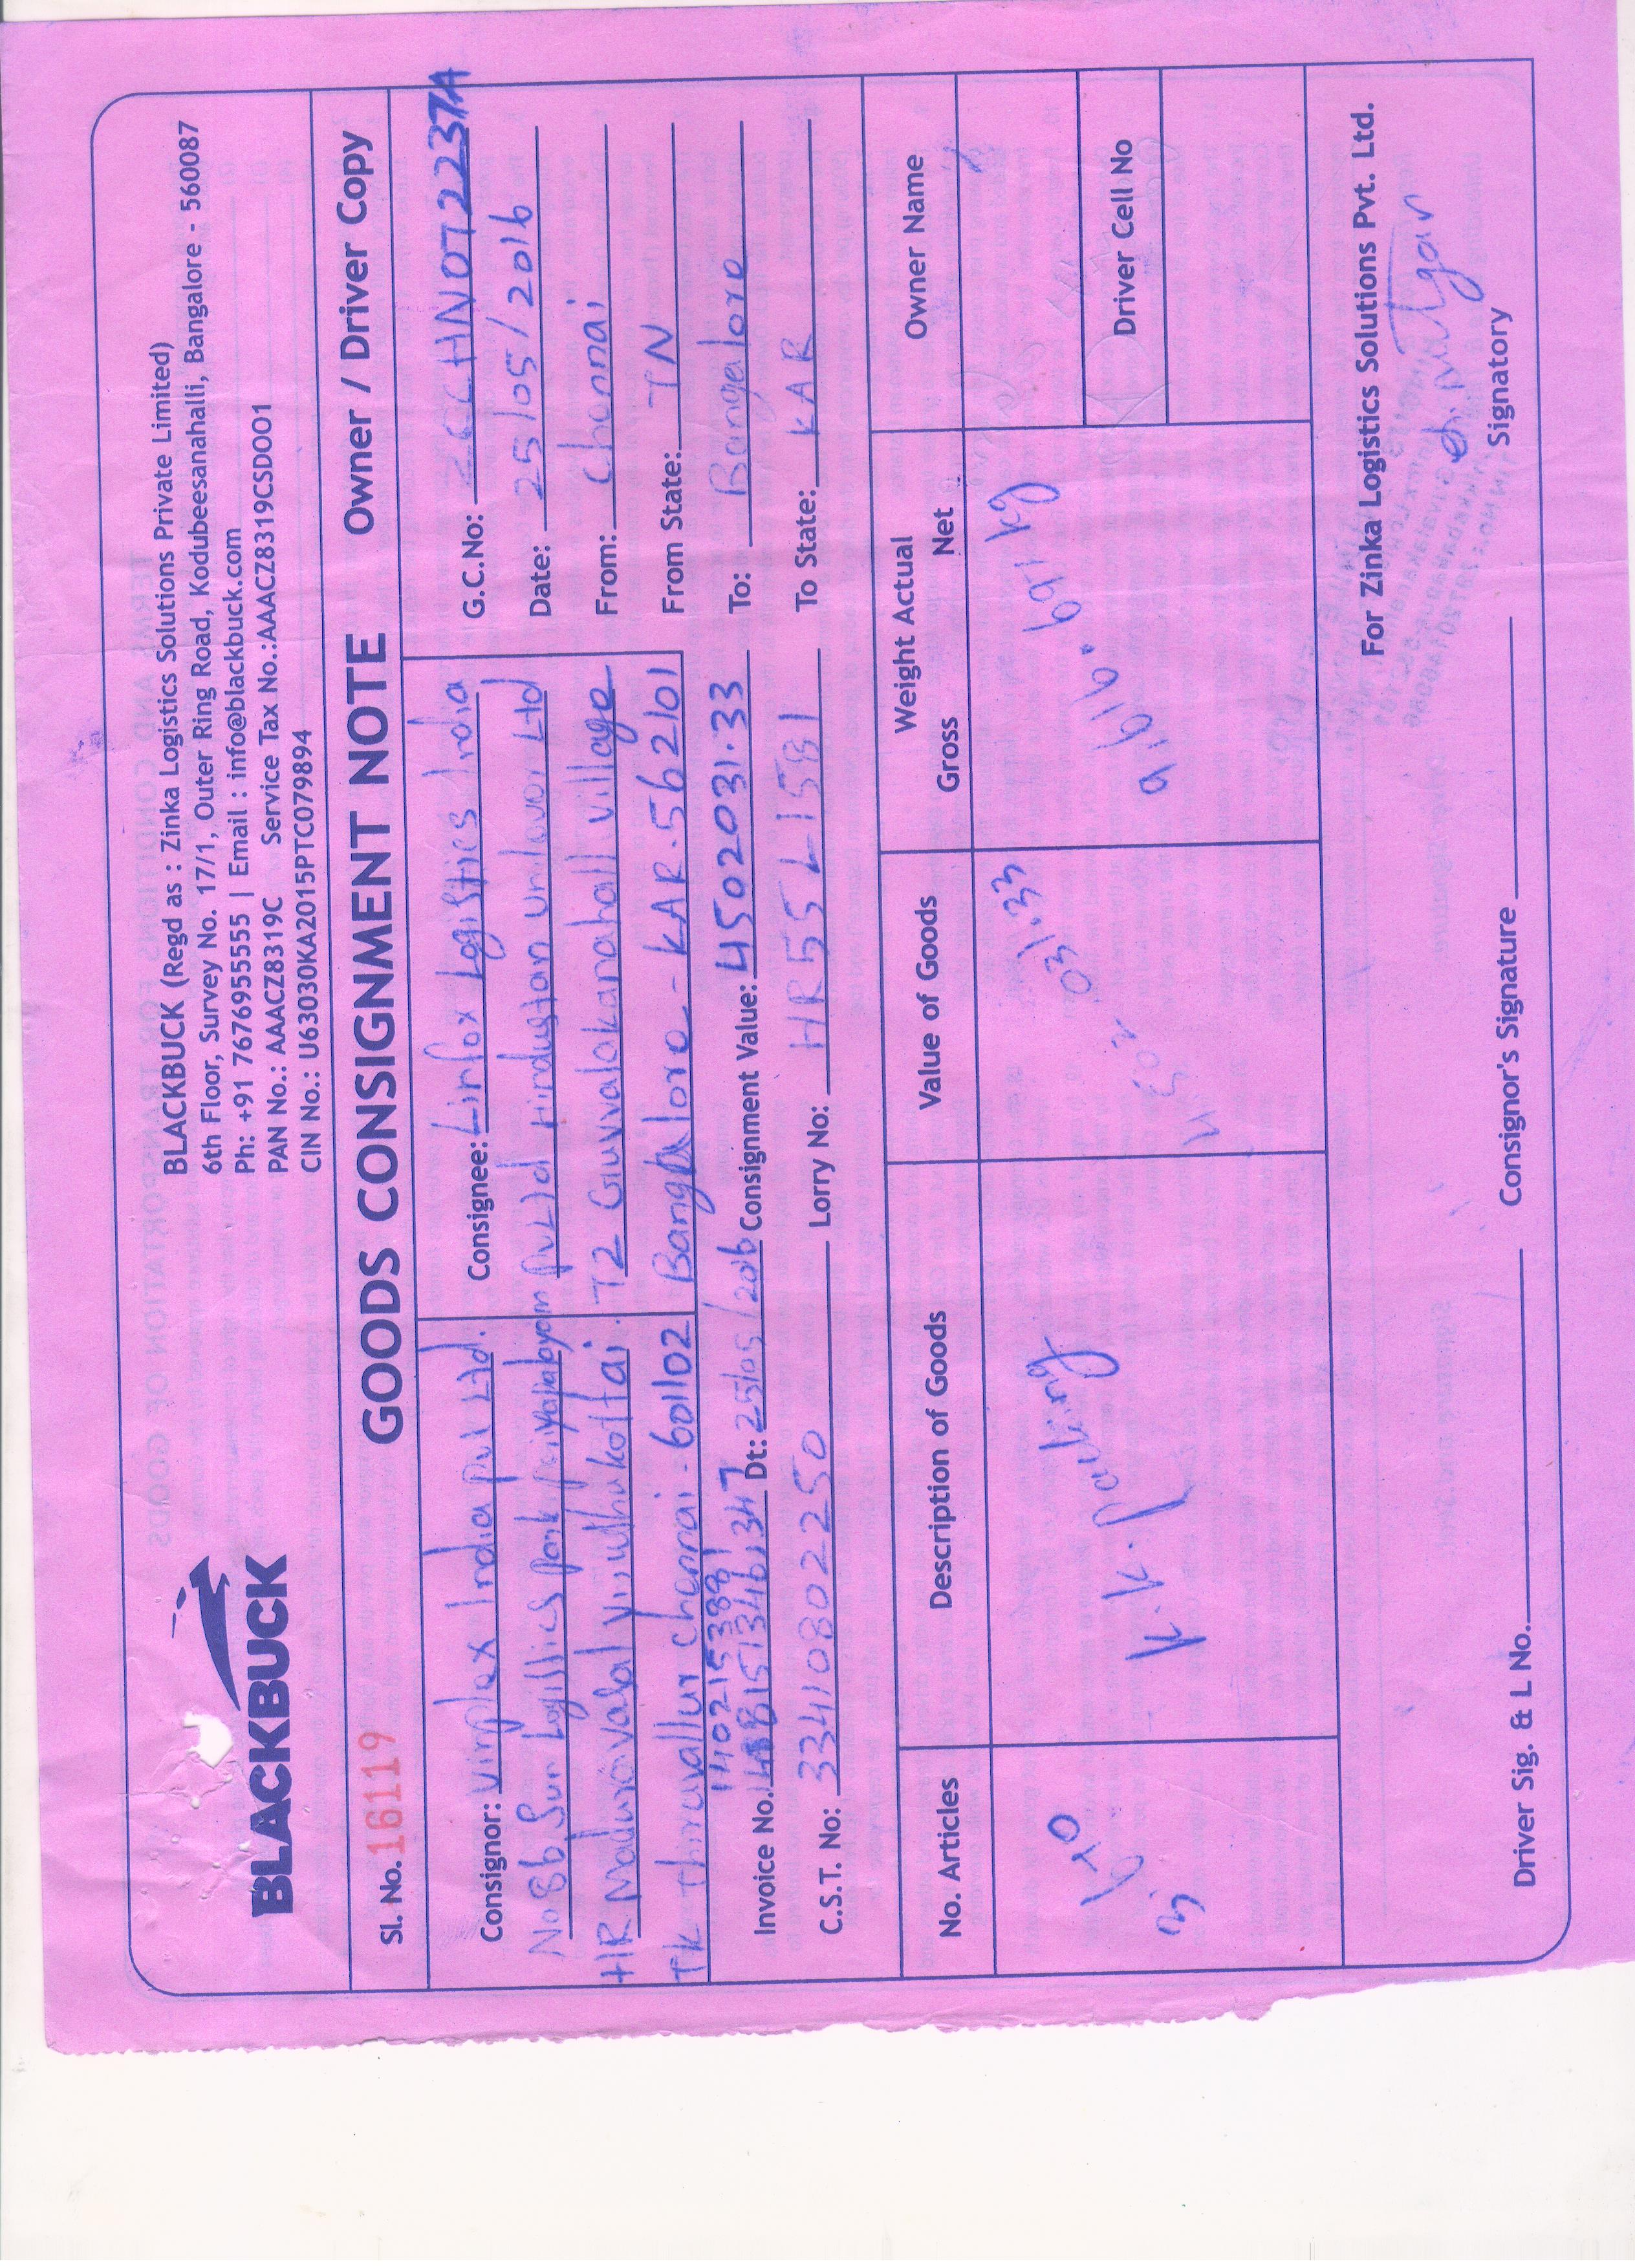 BLACKBUCK
BLACKBUCK (Regd as : Zinka Logistics Solutions Private Limited)
6th Floor, Survey No. 17/1, Outer Ring Road, Kodubeesanahalli, Bangalore - 560087
Ph: +91 7676955555 | Email : info@blackbuck.com
PAN No.: AAACZ8319C Service Tax No.:AAACZ8319CSD001
CIN No.: U63030KA2015PTC079894
Sl. No. 16119 GOODS CONSIGNMENT NOTE Owner / Driver Copy
Consignor: Vinplex India pvt Ltd.
No 86 Sun Logistics Park
HR Maduravalal
TK Thiruvallur Chennai - 601102
Consignee: Linfox Logistics India
Pvt Ltd Hindustan Unilever Ltd
T2 Guvvalakanahall village
Bangalore - KAR - 562101
G.C.No: 7223TA
Date: 25/05/2016
From: Chennai
From State: TN
To: Bangalore
To State: KAR
1140215388
Invoice No. Dt: 25/05/2016 Consignment Value: 4502031.33
C.S.T. No: 33410802250 Lorry No: HR55L1581
No. Articles
Description of Goods
Value of Goods
Weight Actual
Gross Net
Owner Name
K.K. Packing
031.33
kg
Driver Cell No
For Zinka Logistics Solutions Pvt. Ltd.
Driver Sig. & L No. Consignor's Signature Signatory